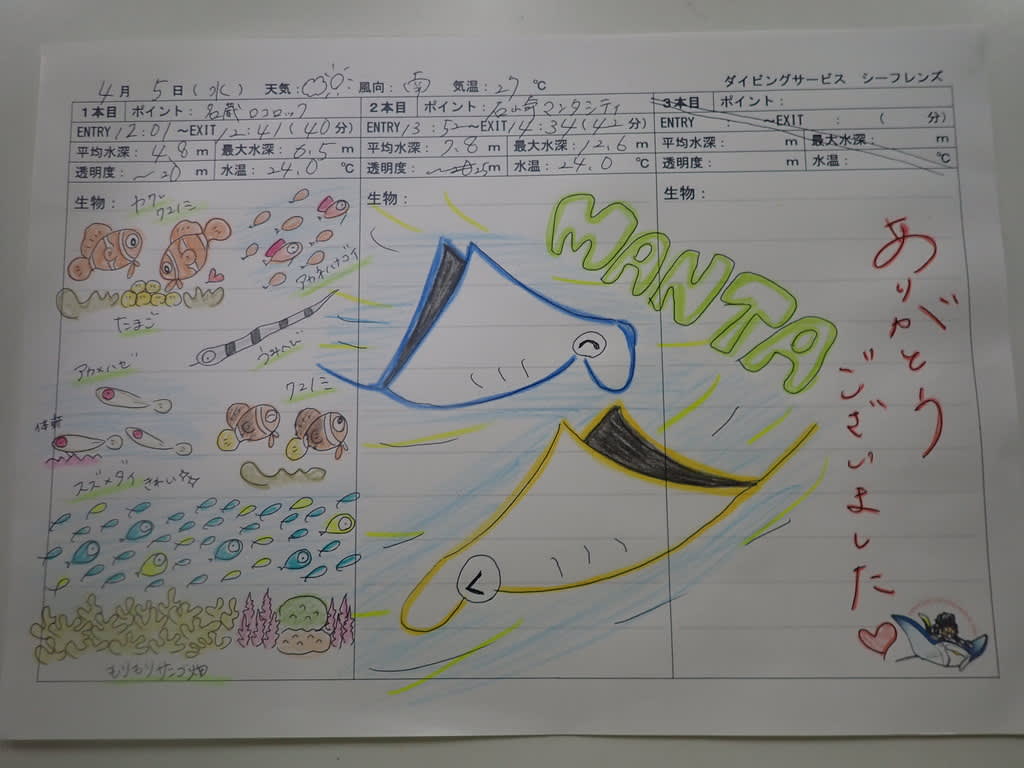 4月 5日(水) 天気: 風向: 南 気温: 27 ℃
ダイビングサービス シーフレンズ
1本目 ポイント: 名蔵
ENTRY 12:01 ~EXIT 12:41(40分)
平均水深: 4.8 m 最大水深: 6.5 m
透明度: ~20 m 水温: 24.0 ℃
生物: ヤブ
クマノミ
アカネハナゴイ
たまご
うみへび
アカメハゼ
クマノミ
スズメダイ きれい☆☆
もりもりサンゴ畑
2本目 ポイント: 石崎マンタシティ
ENTRY 13:52~EXIT 14:34(42分)
平均水深: 7.8 m 最大水深: 12.6 m
透明度: ~25 m 水温: 24.0 ℃
生物:
MANTA
3本目 ポイント:
ENTRY : ~EXIT : ( 分)
平均水深: m 最大水深: m
透明度: m 水温: ℃
生物:
ありがとう
ございました